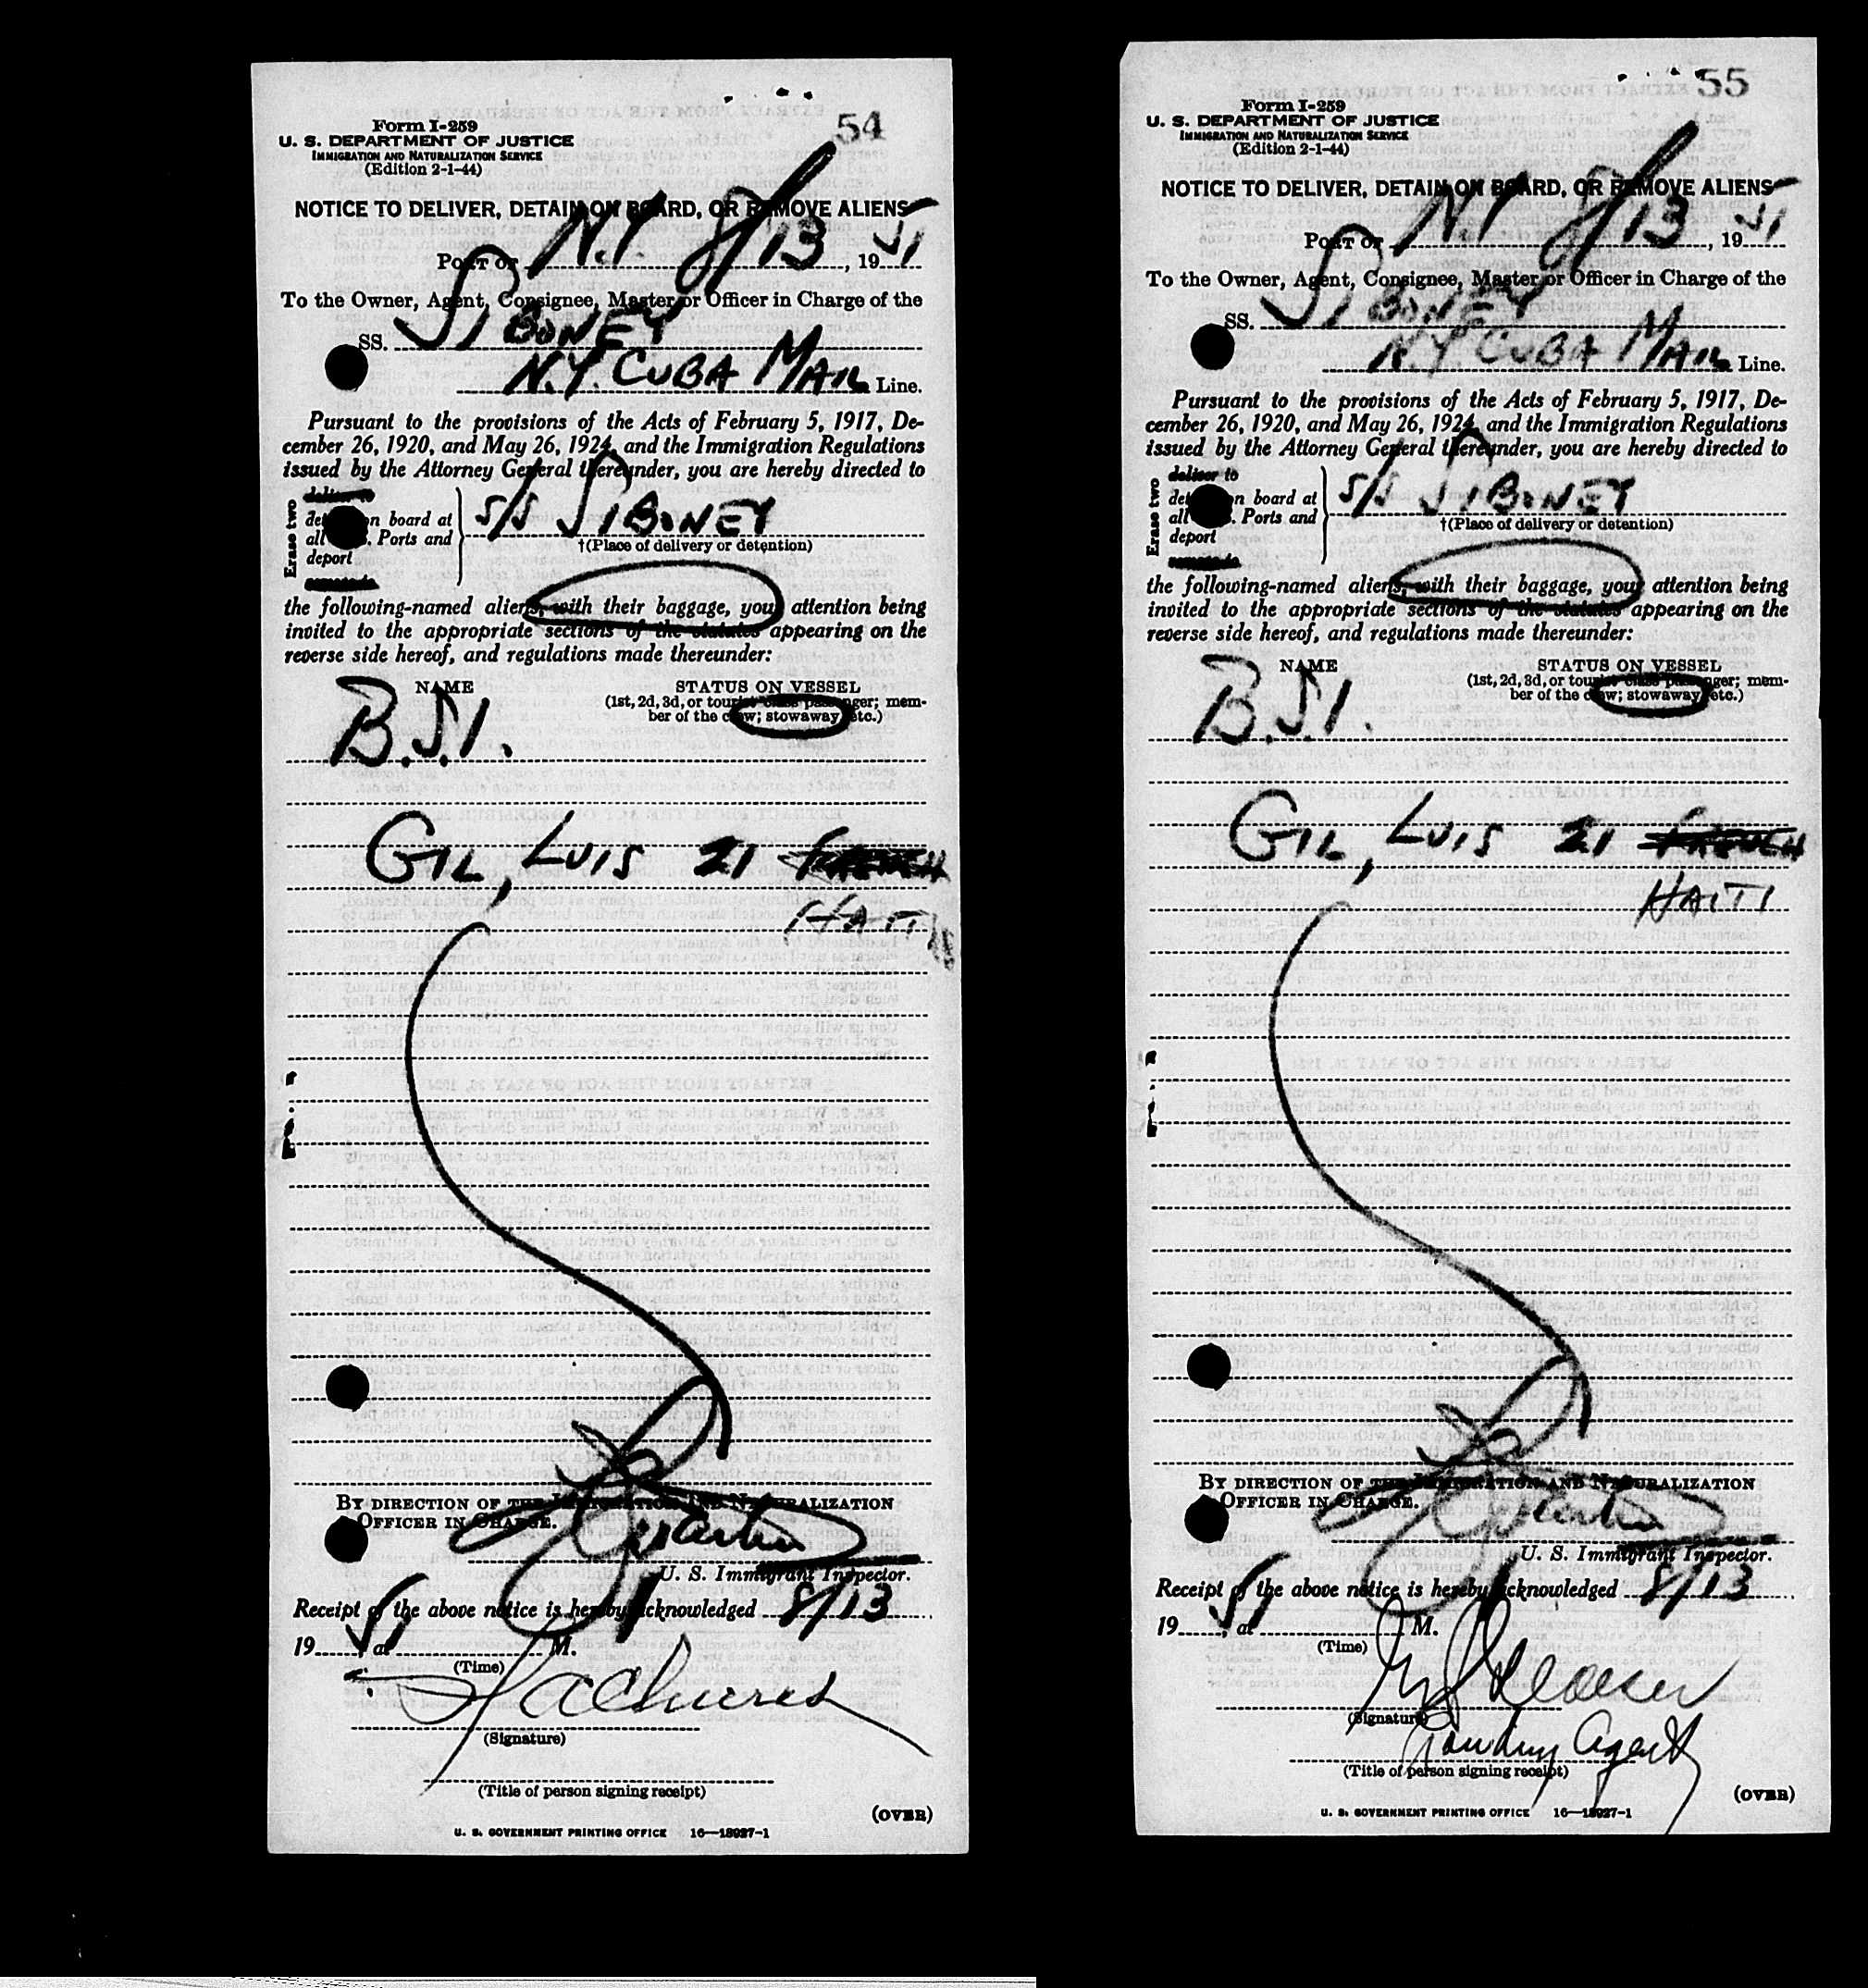 54
Form I-259
U. S. DEPARTMENT OF JUSTICE
IMMIGRATION AND NATURALIZATION SERVICE
(Edition 2-1-44)
NOTICE TO DELIVER, DETAIN ON BOARD, OR REMOVE ALIENS
PORT OF N.Y. 8/13, 1951
To the Owner, Agent, Consignee, Master or Officer in Charge of the
SS. SIBONEY
N.Y. CUBA MAIL Line.
Pursuant to the provisions of the Acts of February 5, 1917, De-
cember 26, 1920, and May 26, 1924, and the Immigration Regulations
issued by the Attorney General thereunder, you are hereby directed to
Erase two
deliver to
det n board at
all . Ports and
deport
S/S SIBONEY
†(Place of delivery or detention)
the following-named aliens, with their baggage, you attention being
invited to the appropriate sections of the statutes appearing on the
reverse side hereof, and regulations made thereunder:
NAME STATUS ON VESSEL
(1st, 2d, 3d, or tourist class passenger; mem-
ber of the crew; stowaway, etc.)
B.S.I.
GIL, LUIS 21 FRENCH
HAITI
BY DIRECTION OF THE IMMIGRATION AND NATURALIZATION
OFFICER IN CHARGE.
U. S. Immigrant Inspector.
Receipt of the above notice is hereby acknowledged 8/13
1951, at M.
(Time)
(Signature)
(Title of person signing receipt)
(OVER)
U. S. GOVERNMENT PRINTING OFFICE 16—18927-1
55
Form I-259
U. S. DEPARTMENT OF JUSTICE
IMMIGRATION AND NATURALIZATION SERVICE
(Edition 2-1-44)
NOTICE TO DELIVER, DETAIN ON BOARD, OR REMOVE ALIENS
PORT OF N.Y. 8/13, 1951
To the Owner, Agent, Consignee, Master or Officer in Charge of the
SS. SIBONEY
N.Y. CUBA MAIL Line.
Pursuant to the provisions of the Acts of February 5, 1917, De-
cember 26, 1920, and May 26, 1924, and the Immigration Regulations
issued by the Attorney General thereunder, you are hereby directed to
Erase two
deliver to
det n board at
all . Ports and
deport
S/S SIBONEY
†(Place of delivery or detention)
the following-named aliens, with their baggage, you attention being
invited to the appropriate sections of the statutes appearing on the
reverse side hereof, and regulations made thereunder:
NAME STATUS ON VESSEL
(1st, 2d, 3d, or tourist class passenger; mem-
ber of the crew; stowaway, etc.)
B.S.I.
GIL, LUIS 21 FRENCH
HAITI
BY DIRECTION OF THE IMMIGRATION AND NATURALIZATION
OFFICER IN CHARGE.
U. S. Immigrant Inspector.
Receipt of the above notice is hereby acknowledged 8/13
1951, at M.
(Time)
(Signature)
Agent
(Title of person signing receipt)
(OVER)
U. S. GOVERNMENT PRINTING OFFICE 16—18927-1